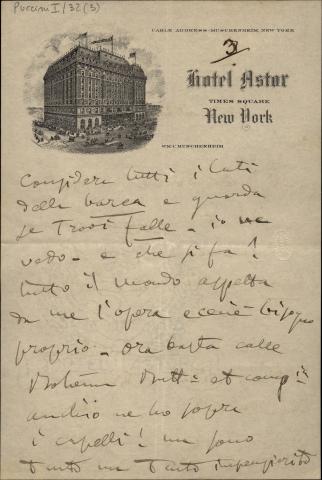 Puccini I/32(3)
CABLE ADDRESS-MUSCHENHEIM, NEW YORK
3
Hotel Astor
TIMES SQUARE
New York
WM. C. MUSCHENHEIM
Considera tutti i lati
della barca e guarda
se trovi falle - io ne
vedo - e che si fa!
tutto il mondo aspetta
da me l'opera e ce n'è bisogno
proprio - ora basta colle
Bohème Butt: et comp:
anch'io ne ho sopra
i capelli! ma sono
tanto ma tanto impensierito